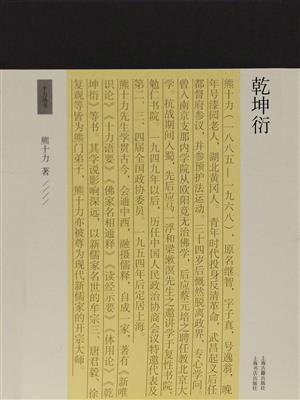 乾坤衍
熊十力(一八八五—一九六八),原名继智,字子真,号逸翁,晚
年号漆园老人,湖北黄冈人。青年时代投身反清革命,武昌起义后任
都督府参议,并参预护法运动。三十四岁后慨然脱离政界,专心学问,
曾入南京支那内学院从欧阳竟无治佛学,后应蔡元培之聘任教北京大
学。抗战期间入蜀,先后应马一浮和梁漱溟先生之邀讲学于复性书院、
勉仁书院。一九四九年以后,历任中国人民政治协商会议特邀代表及
第二、三、四届全国政协委员。一九五四年后定居上海。
熊十力先生学贯古今,会通中西,融摄儒释,自成一家,著有《新唯
识论》《十力语要》《佛家名相通释》《读经示要》《体用论》《乾
坤衍》等书,其学说影响深远,以新儒家名世的牟宗三、唐君毅、徐
复观等皆为熊门弟子,熊十力亦被尊为现代新儒家的开宗大师
上海古籍出版社
上海书店出版社
十力丛书
熊十力 著